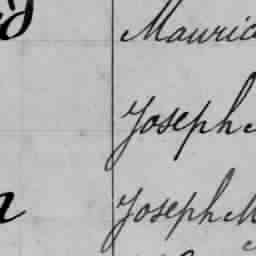 Mauric
Joseph
Joseph M